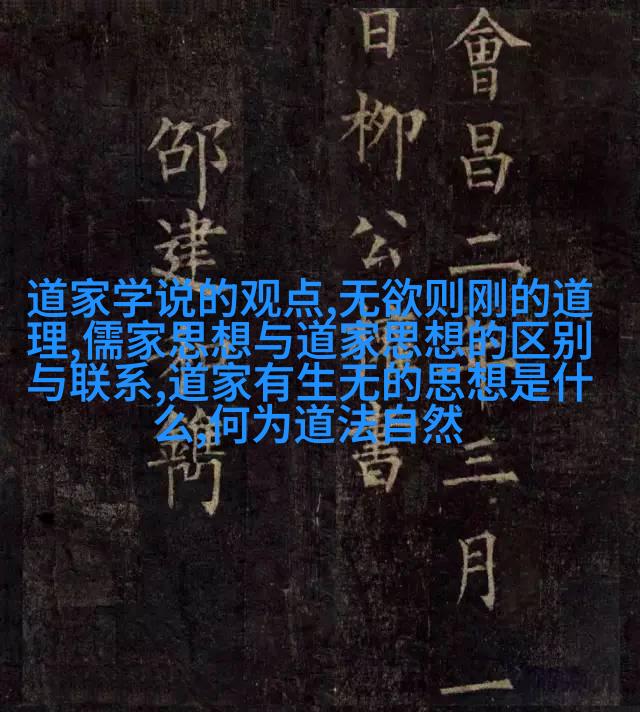 會昌二年三月一
日柳公權書
邵建鐫
道家学说的观点,无欲则刚的道
理,儒家思想与道家思想的区别
与联系,道家有生无的思想是什
么,何为道法自然